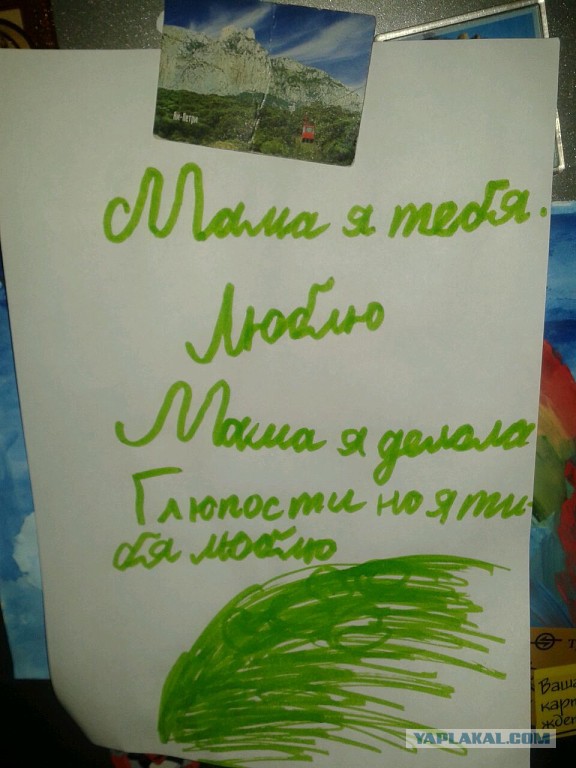 Ай-Петри
Мама я тебя.
Люблю
Мама я делола
Глюпости но я ти-
бя люблю
Ваша
карт
ждет
YAPLAKAL.COM